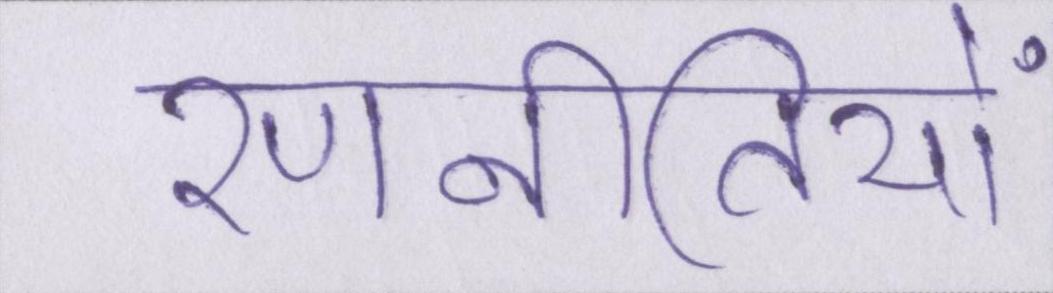 रणनीतियों